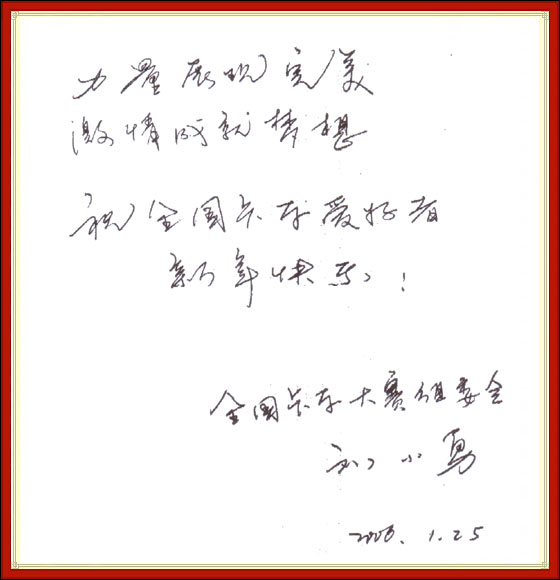 力量展现完美
激情成就梦想
祝全国卡车爱好者
新年快乐!
全国卡车大赛组委会
刘小勇
2006.1.25